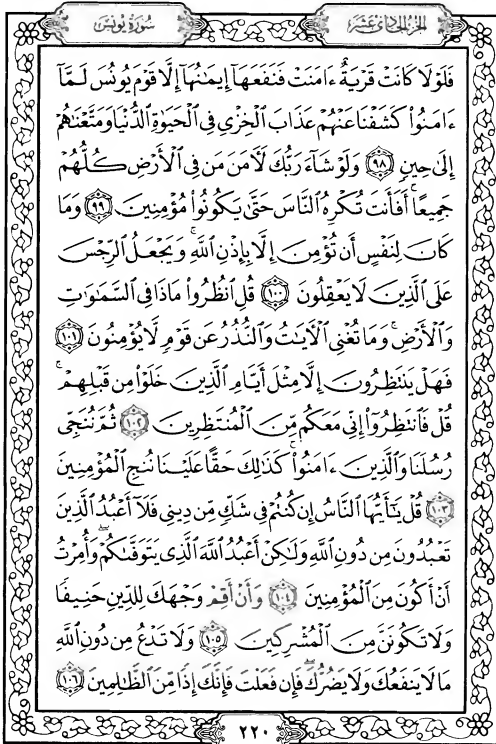 سُورَةُ يُونُس
الجُزءُ الحَادِي عَشَر
فَلَوْلَا كَانَتْ قَرْيَةٌ ءَامَنَتْ فَنَفَعَهَآ إِيمَٰنُهَآ إِلَّا قَوْمَ يُونُسَ لَمَّآ
ءَامَنُوا۟ كَشَفْنَا عَنْهُمْ عَذَابَ ٱلْخِزْىِ فِى ٱلْحَيَوٰةِ ٱلدُّنْيَا وَمَتَّعْنَٰهُمْ
إِلَىٰ حِينٍ ٩٨ وَلَوْ شَآءَ رَبُّكَ لَءَامَنَ مَن فِى ٱلْأَرْضِ كُلُّهُمْ
جَمِيعًا ۚ أَفَأَنتَ تُكْرِهُ ٱلنَّاسَ حَتَّىٰ يَكُونُوا۟ مُؤْمِنِينَ ٩٩ وَمَا
كَانَ لِنَفْسٍ أَن تُؤْمِنَ إِلَّا بِإِذْنِ ٱللَّهِ ۚ وَيَجْعَلُ ٱلرِّجْسَ
عَلَى ٱلَّذِينَ لَا يَعْقِلُونَ ١٠٠ قُلِ ٱنظُرُوا۟ مَاذَا فِى ٱلسَّمَٰوَٰتِ
وَٱلْأَرْضِ ۚ وَمَا تُغْنِى ٱلْءَايَٰتُ وَٱلنُّذُرُ عَن قَوْمٍ لَّا يُؤْمِنُونَ ١٠١
فَهَلْ يَنتَظِرُونَ إِلَّا مِثْلَ أَيَّامِ ٱلَّذِينَ خَلَوْا۟ مِن قَبْلِهِمْ ۚ
قُلْ فَٱنتَظِرُوٓا۟ إِنِّى مَعَكُم مِّنَ ٱلْمُنتَظِرِينَ ١٠٢ ثُمَّ نُنَجِّى
رُسُلَنَا وَٱلَّذِينَ ءَامَنُوا۟ ۚ كَذَٰلِكَ حَقًّا عَلَيْنَا نُنجِ ٱلْمُؤْمِنِينَ
١٠٣ قُلْ يَٰٓأَيُّهَا ٱلنَّاسُ إِن كُنتُمْ فِى شَكٍّ مِّن دِينِى فَلَآ أَعْبُدُ ٱلَّذِينَ
تَعْبُدُونَ مِن دُونِ ٱللَّهِ وَلَٰكِنْ أَعْبُدُ ٱللَّهَ ٱلَّذِى يَتَوَفَّىٰكُمْ ۖ وَأُمِرْتُ
أَنْ أَكُونَ مِنَ ٱلْمُؤْمِنِينَ ١٠٤ وَأَنْ أَقِمْ وَجْهَكَ لِلدِّينِ حَنِيفًا
وَلَا تَكُونَنَّ مِنَ ٱلْمُشْرِكِينَ ١٠٥ وَلَا تَدْعُ مِن دُونِ ٱللَّهِ
مَا لَا يَنفَعُكَ وَلَا يَضُرُّكَ ۖ فَإِن فَعَلْتَ فَإِنَّكَ إِذًا مِّنَ ٱلظَّٰلِمِينَ ١٠٦
٢٢٠